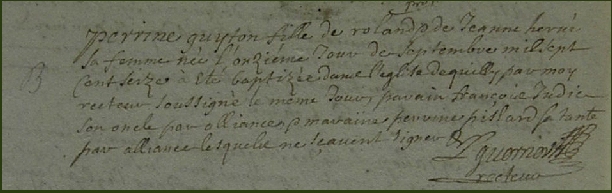 perrine guyton fille de roland & de Jeanne hervi
sa femme née l'onziéme Jour de Septembre mil sept
Cent seize a eté baptizée dans l'eglise de quilly par moy
recteur soussigné le même Jour, parain françois Judic
son oncle par alliance & maraine perrine pislard sa tante
par alliance lesquels ne scavent signer
recteur
B